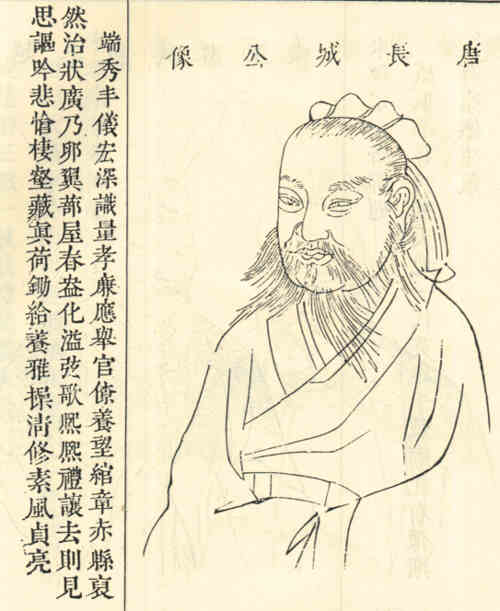 唐長城公像
端秀丰儀宏深識量孝廉應舉官僚養望綰章赤縣裒
然治狀廣乃卵翼蔀屋春盎化溢弦歌熙熙禮讓去則見
思謳吟悲愴棲壑藏眞荷鋤給養雅操清修素風貞亮